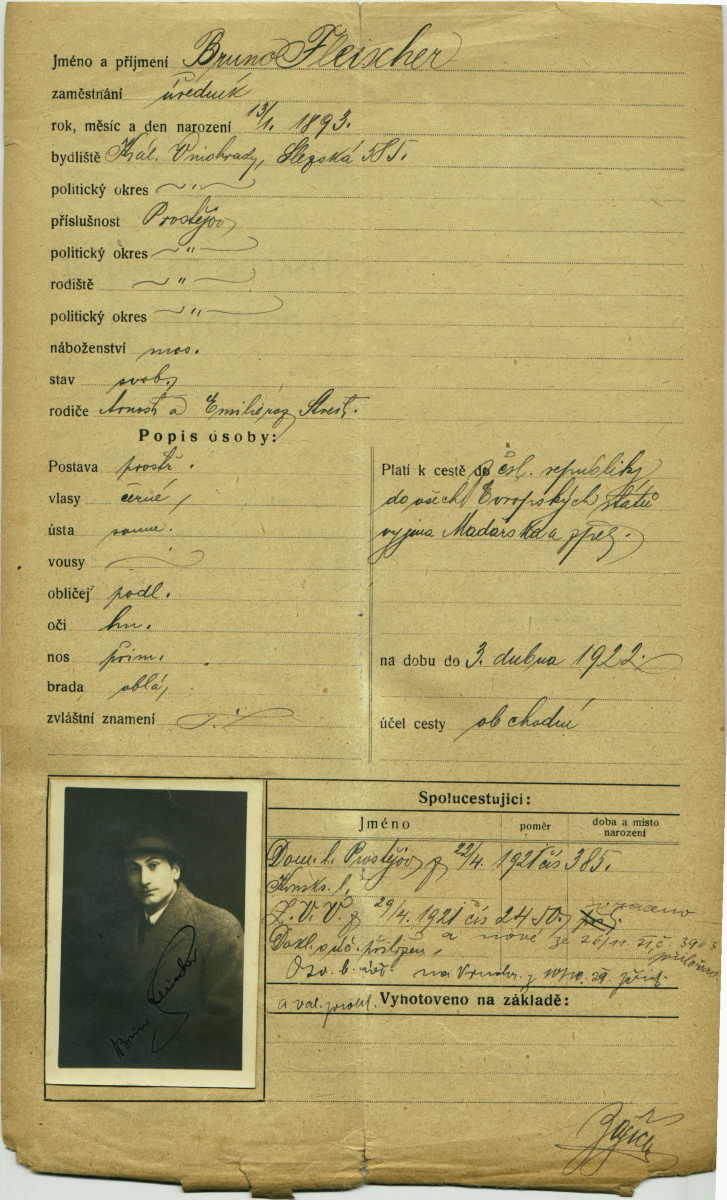 Jméno a příjmení Bruno Fleischer
zaměstnání úředník
rok, měsíc a den narození 13/1. 1893.
bydliště Král. Vinohrady, Slezská 385.
politický okres „
příslušnost Prostějov
politický okres „
rodiště „
politický okres „
náboženství mos.
stav svob.
rodiče Arnošt a Emilie
Popis osoby:
Postava prostř.
vlasy černé,
ústa soum.
vousy
obličej podl.
oči hn.
nos přim.
brada oblá,
zvláštní znamení
Platí k cestě do čsl. republiky
do všech Evropských států
vyjma Maďarska a zpět.
na dobu do 3. dubna 1922.
účel cesty obchodní
Spolucestující:
Jméno
poměr
doba a místo narození
Dom. l. Prostějov z 22/4. 1921 čís 385.
z 29/4. 1921 čís 2450
a nové ze 26/11
a val.
Vyhotoveno na základě:
Bruno Fleischer